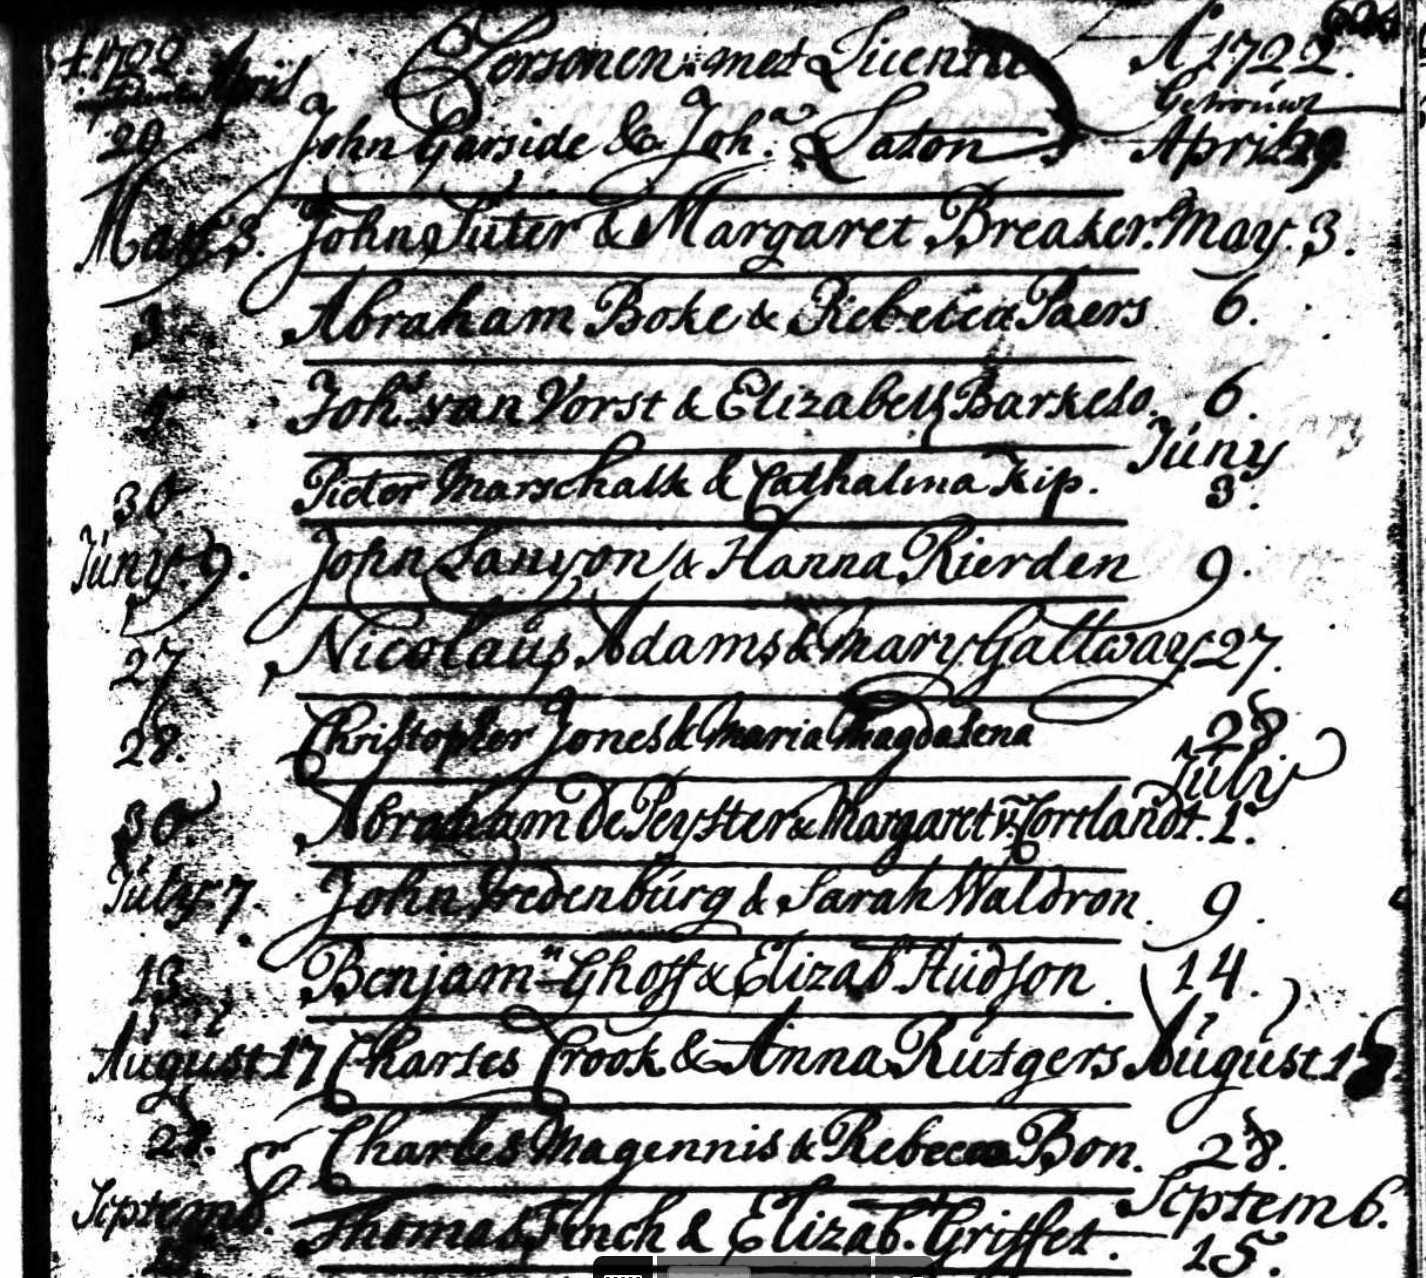 A 1722 April Personen met Licentie A 1722.
Getrouwt
20 John Garside & Joh.a Laton April 29.
May 3. John Suter & Margaret Breaker. May. 3.
3. Abraham Boke & Rebecca Paers 6.
5 Joh.s van Vorst & Elizabeth Barkelo. 6.
Júny
30. Pieter Marschalk & Cathalina Kip. 3.
Júny 9. John Lanyon & Hanna Rierden 9.
27 Nicolaús Adams & Mary Gallway 27.
28. Christopher Jones & Maria Magdalena 28.
Júlij
30 Abraham De Peyster & Margaret v. Cortlandt. 1.
Júly 7. John Vredenbúrg & Sarah Waldron. 9.
13. Benjam.n Ghoff & Elizab. Húdson. 14.
Aúgust 17 Charles Crook & Anna Rútgers Aúgust 18
28. Charles Magennis & Rebecca Bon. 28.
Septemb. Septemb.
Thomas Finch & Elizab.t Griffet. 15.